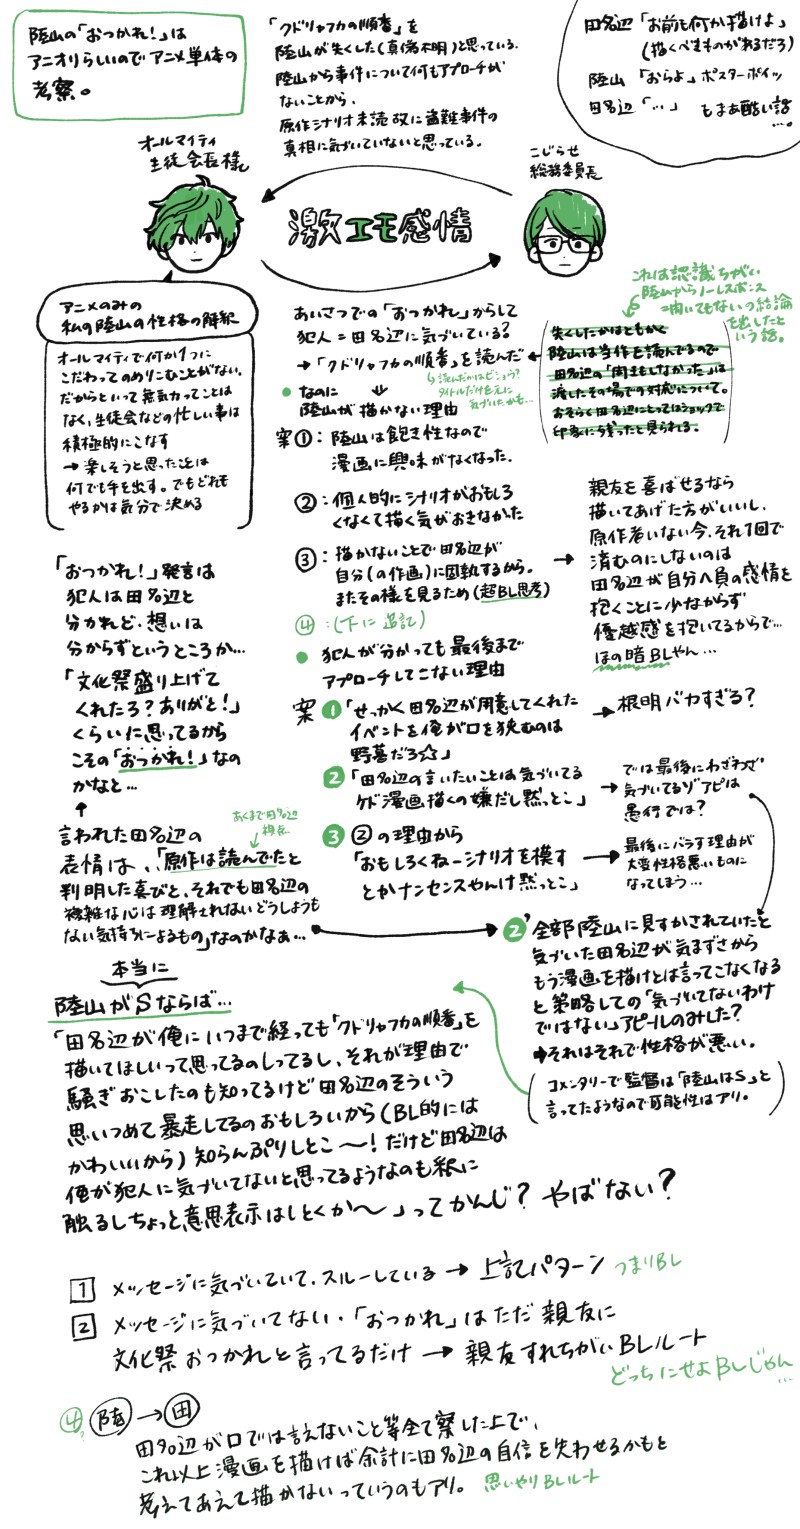 陸山の「おつかれ！」は
アニオリらしいのでアニメ単体の
考察。
「クドリャフカの順番」を
陸山が失くした(真偽不明)と思っている.
陸山から事件について何もアプローチが
ないことから、
原作シナリオ未読故に盗難事件の
真相に気づいていないと思っている。
田名辺「お前も何か描けよ」
(描くべきものがあるだろ)
陸山「おらよ」ポスターポイッ
田名辺「…」 もまあ酷い話
…。
オールマイティ
生徒会長様
こじらせ
総務委員長
激エモ感情
アニメのみの
私の陸山の性格の解釈
オールマイティで何か1つに
こだわってのめりこむことがない。
だからといって無気力ってことは
なく、生徒会などの忙しい事は
積極的にこなす
→ 楽しそうと思ったことは
何でも手を出す。でもどれを
やるかは気分で決める
あいさつでの「おつかれ」からして
犯人=田名辺に気づいている？
→「クドリャフカの順番」を読んだ
↳読んだかはビミョう？
タイトルだけを元に
気づいたかも…
これは認識ちがい
陸山からノーレスポンス
=開いてもないの結論
を出したと
いう話。
失くしたかはともかく
陸山は当作を読んでるので
田名辺の「開きもしなかった」は
渡したその場での対応について。
おそらく田名辺にとってはショックで
印象に残ったと見られる。
● なのに ↓
陸山が描かない理由
案①：陸山は飽き性なので
漫画に興味がなくなった.
②：個人的にシナリオがおもしろ
くなくて描く気がおきなかった
③：描かないことで田名辺が
自分(の作画)に固執するから。
またその様を見るため(超BL思考)
→ 親友を喜ばせるなら
描いてあげた方がいいし、
原作者いない今、それ1回で
済むのにしないのは
田名辺が自分へ負の感情を
抱くことに少なからず
優越感を抱いてるからで…
ほの暗BLやん…
④：(下に追記)
● 犯人が分かっても最後まで
アプローチしてこない理由
案❶「せっかく田名辺が用意してくれた
イベントを俺が口を挟むのは
野暮だろ☆」
→ 根明バカすぎる？
❷「田名辺の言いたいことは気づいてる
ケド漫画描くの嫌だし黙っとこ」
→ では最後にわざわざ
気づいてるゾアピは
愚行では？
❸ ②の理由から
「おもしろくねーシナリオを模す
とかナンセンスやんけ黙っとこ」
→ 最後にバラす理由が
大変性格悪いものに
なってしまう…
「おつかれ！」発言は
犯人は田名辺と
分かれど、想いは
分からずというところか…
「文化祭盛り上げて
くれたろ？ありがと！」
くらいに思ってるから
こその「おつかれ！」なの
かなと…
↑
あくまで田名辺
視点
言われた田名辺の
表情は、「原作は読んでたと
判明した喜びと、それでも田名辺の
複雑な心は理解されないどうしようも
ない気持ちによるもの」なのかなぁ…
❷' 全部陸山に見すかされていたと
気づいた田名辺が気まずさから
もう漫画を描けとは言ってこなくなる
と策略しての「気づいてないわけ
ではない」アピールのみした？
➡それはそれで性格が悪い。
(コメンタリーで監督は「陸山はS」と
言ってたようなので可能性はアリ。)
本当に
陸山がSならば…
「田名辺が俺にいつまで経っても「クドリャフカの順番」を
描いてほしいって思ってるのしってるし、それが理由で
騒ぎおこしたのも知ってるけど田名辺のそういう
思いつめて暴走してるのおもしろいから(BL的には
かわいいから)知らんぷりしとこ〜！だけど田名辺は
俺が犯人に気づいてないと思ってるようなのも釈に
触るしちょっと意思表示はしとくか〜」ってかんじ？ やばない？
1 メッセージに気づいていて、スルーしている → 上記パターン つまりBL
2 メッセージに気づいてない・「おつかれ」はただ親友に
文化祭おつかれと言ってるだけ → 親友すれちがいBLルート
どっちにせよBLじゃん
…
④ 陸→田
田名辺が口では言えないこと等全て察した上で、
これ以上漫画を描けば余計に田名辺の自信を失わせるかもと
考えてあえて描かないっていうのもアリ。 思いやりBLルート